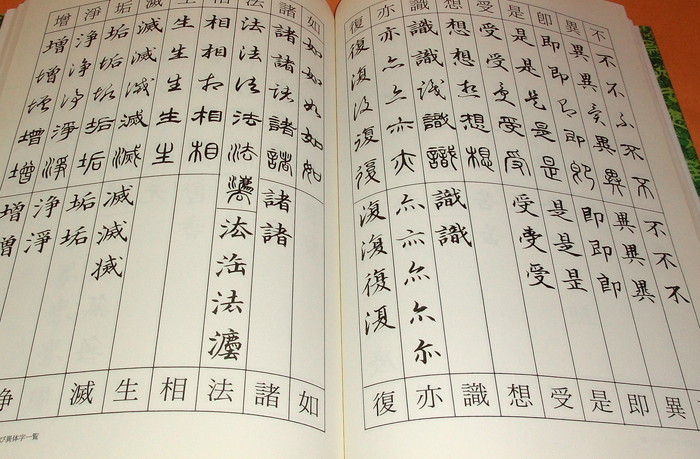 不不不不不不不不不
異異異異異異異異異異
即即即即即即即即即即
是是是是是是是是是是
受受受受受受受受受受
想想想想想想想
識識識識識識識識識
亦亦亦亦亦亦亦亦亦亦亦亦
復復復復復復復復復復復
如如如如如如如
諸諸諸諸諸諸諸諸諸
法法法法法法灋法法法灋法
相相相相相相相
生生生生生生生
滅滅滅滅滅滅滅滅滅滅
垢垢垢垢垢垢垢垢
淨淨淨淨淨淨淨淨
増増増増増増増増
び異体字一覧